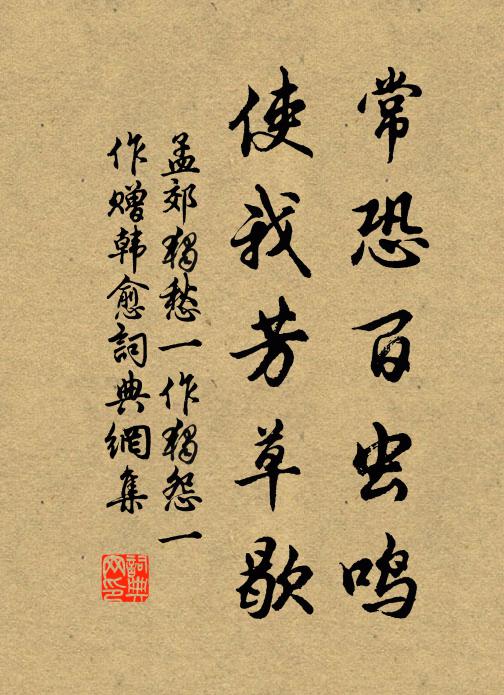 常恐百虫鸣
使我芳草歇
孟郊独愁一作独怨一
作赠韩愈詞典網集
詞典网印